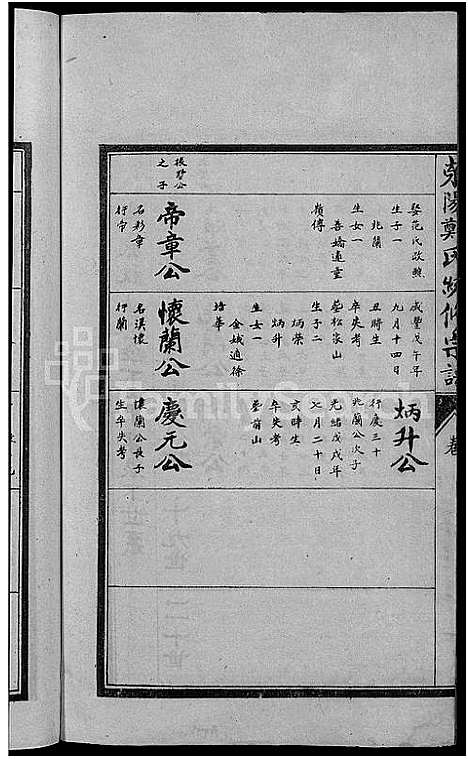 滎陽鄭氏續修宗譜
卷
娶范氏改縣
生子一
北蘭
生女一
善嬌適童
嶺傅
帝章公
名彩章
行帝
振聲公
之子
咸豐戊午年
九月十四日
丑時生
卒失考
塟松家山
生子二
炳榮
炳升
生女一
金娥適徐
培華
懷蘭公
名漢懷
行蘭
炳升公
行慶三十
北蘭公次子
光緒戊戌年
七月二十日
亥時生
卒失考
塟前山
慶元公
懷蘭公長子
生卒失考
FamilySearch